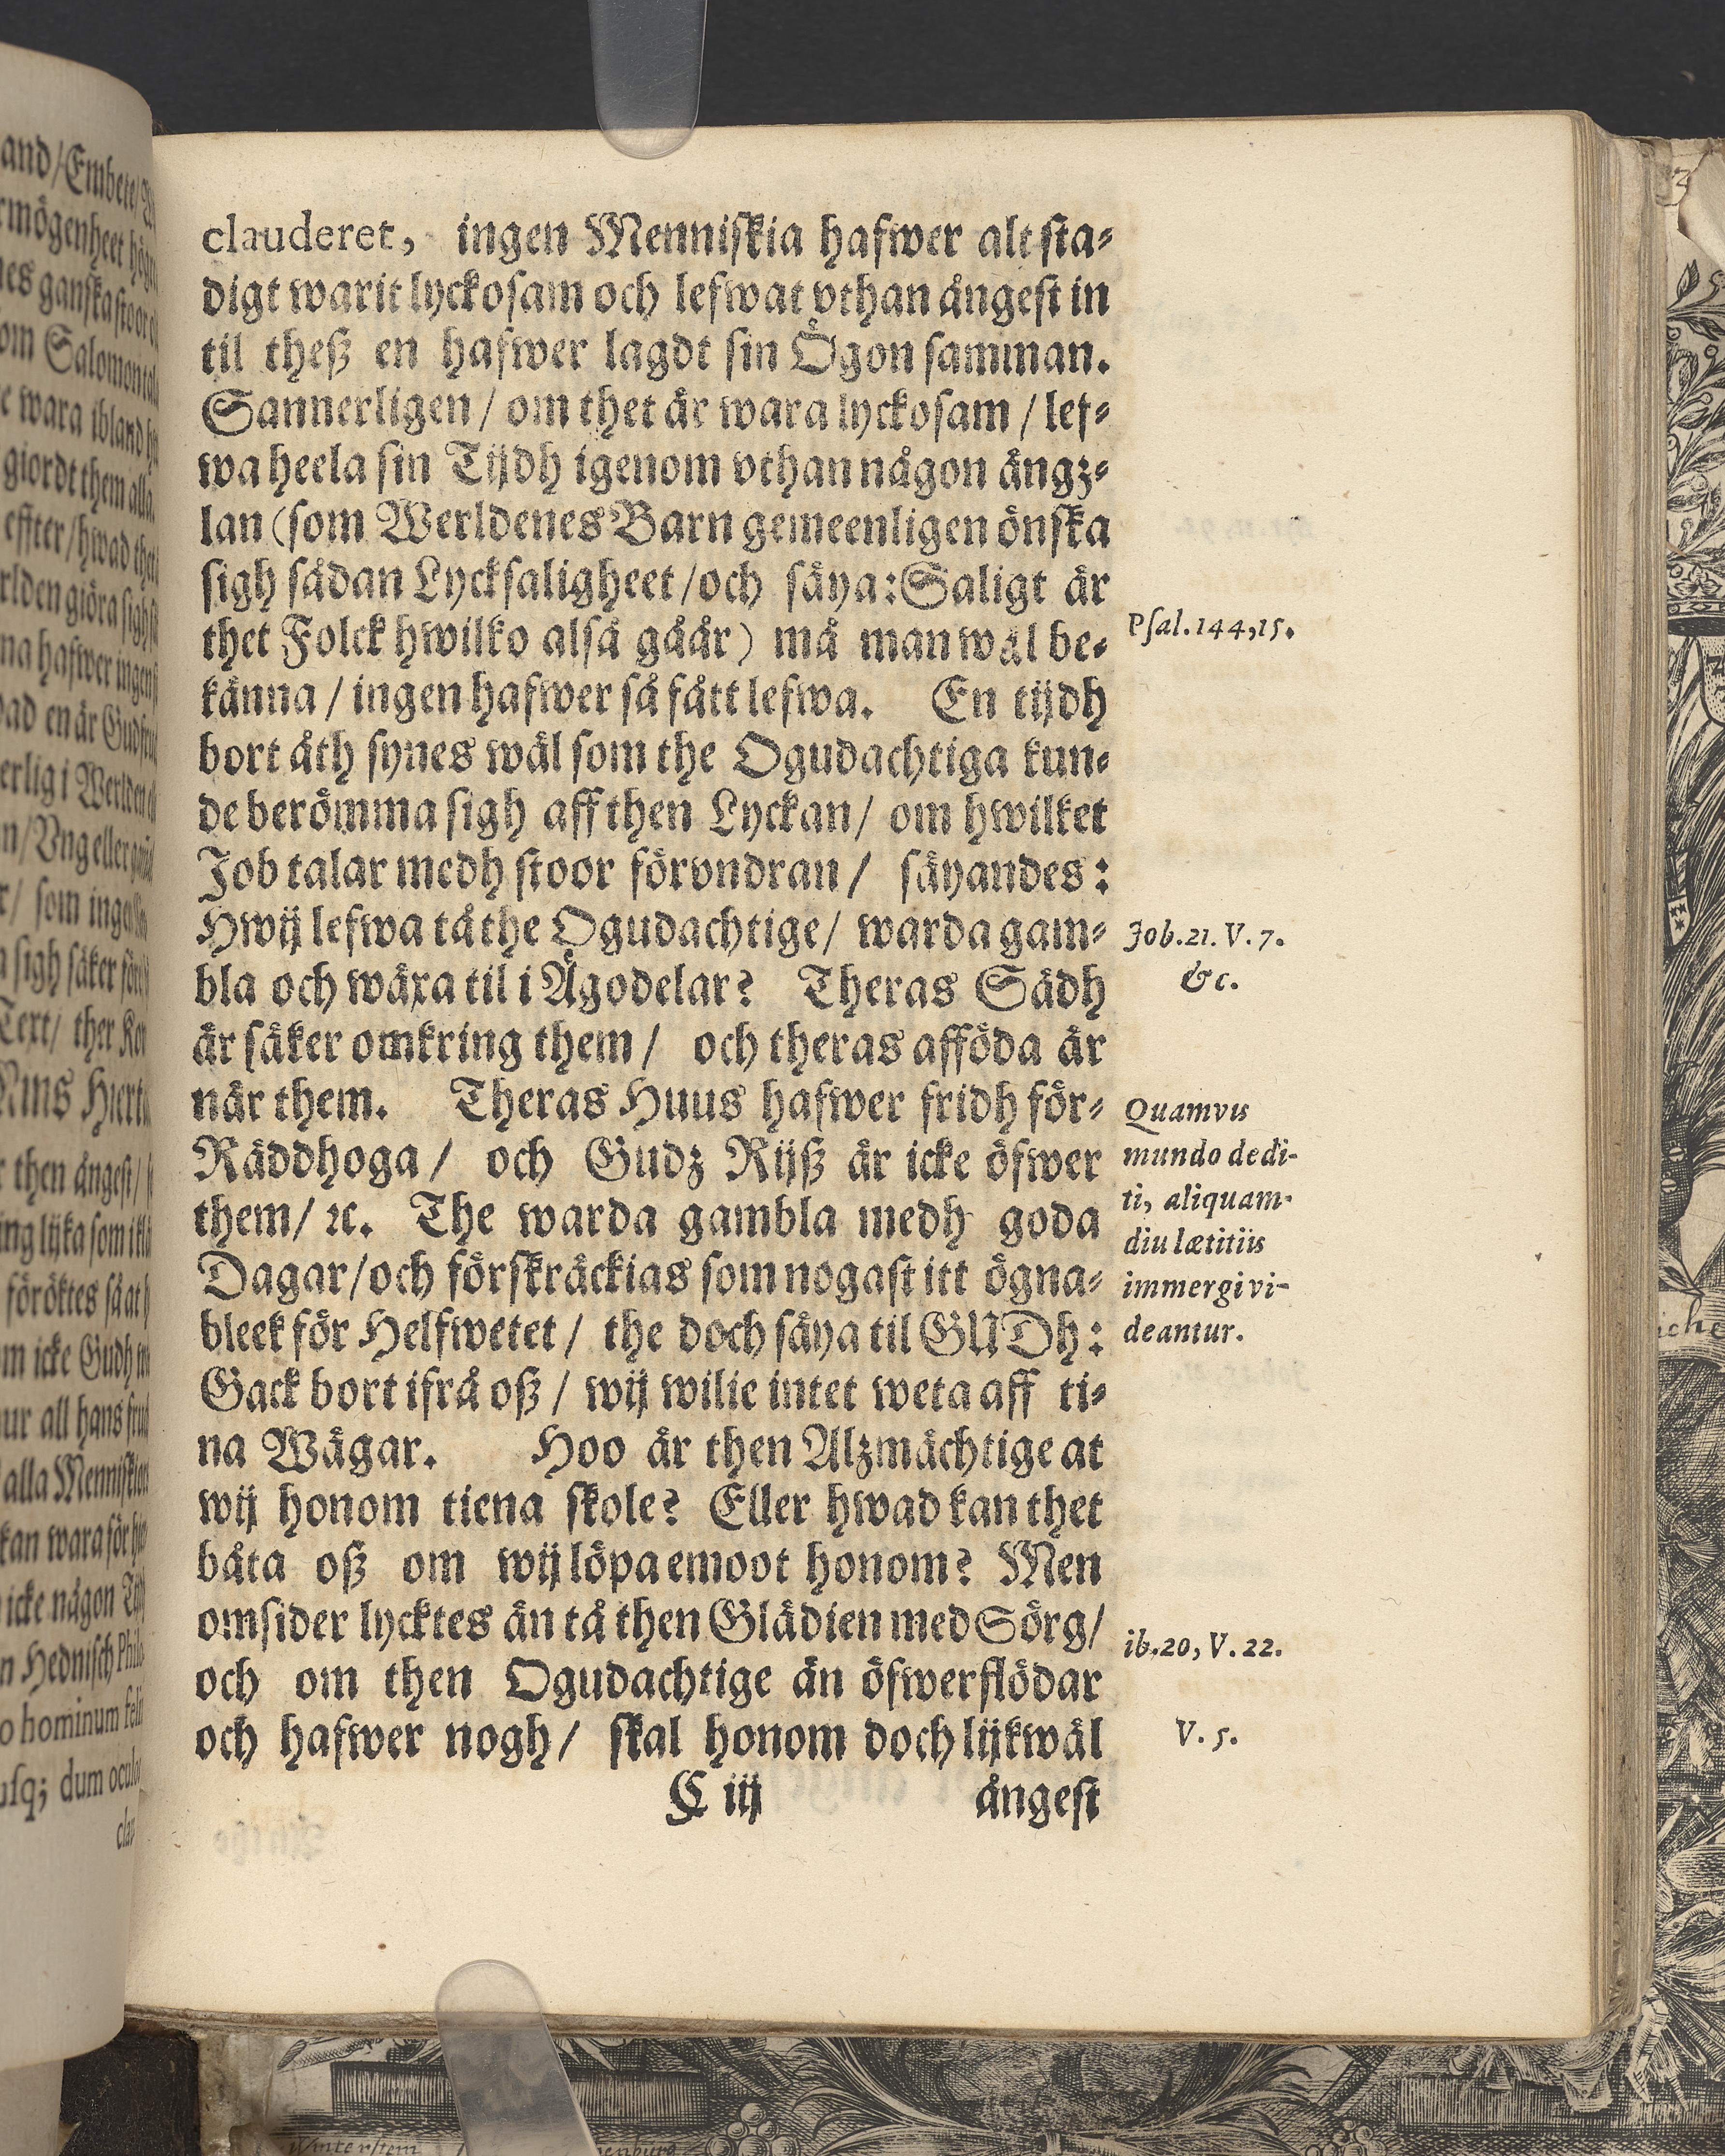 clauderet, ingen Menniskia hafwer alt sta-
digt warit lyckosam och lefwat vthan ångest in
til theß en hafwer lagdt sin Ögon samman.
Sannerligen / om thet är wara lyckosam / lef-
wa heela sin Tijdh igenom vthan någon ängz-
lan (som Werldenes Barn gemeenligen önska
sigh sådan Lycksaligheet / och säya: Saligt är
thet Folck hwilko alså gåår) må man wäl be-
känna / ingen hafwer så fått lefwa. En tijdh
bort åth synes wäl som the Ogudachtiga kun-
de berömma sigh aff then Lyckan / om hwilket
Job talar medh stoor förvndran / säyandes:
Hwij lefwa tå the Ogudachtige / warda gam-
bla och wäxa til i Ägodelar? Theras Sädh
är säker omkring them / och theras afföda är
när them. Theras Huus hafwer fridh för-
Räddhoga / och Gudz Rijß är icke öfwer
them / ꝛc. The warda gambla medh goda
Dagar / och förskräckias som nogast itt ögna-
bleek för Helfwetet / the doch säya til GUDh:
Gack bort ifrå oß / wij wilie intet weta aff ti-
na Wägar. Hoo är then Alzmächtige at
wij honom tiena skole? Eller hwad kan thet
båta oß om wij löpa emoot honom? Men
omsider lycktes än tå then Glädien med Sörg /
och om then Ogudachtige än öfwerflödar
och hafwer nogh / skal honom doch lijkwäl
C iij ångest
Psal. 144, 15.
Job. 21. V. 7.
&c.
Quamvis
mundo dedi-
ti, aliquam-
diu lætitiis
immergi vi-
deantur.
ib. 20, V. 22.
V. 5.
and / Embete /
rmögenheet
ganska stoor
om Salomon
wara ibland
giordt them alla.
effter / hwad thet
giöra sigh
na hafwer
en är
i Werlden
/ Vng eller
/ som
sigh säker
Text / ther
Hierta
then ångest /
lijka som
föröktes så at
icke Gudh
all hans
alla
kan wara för
icke någon
Hednisch Philo
hominum
usq; dum
clau